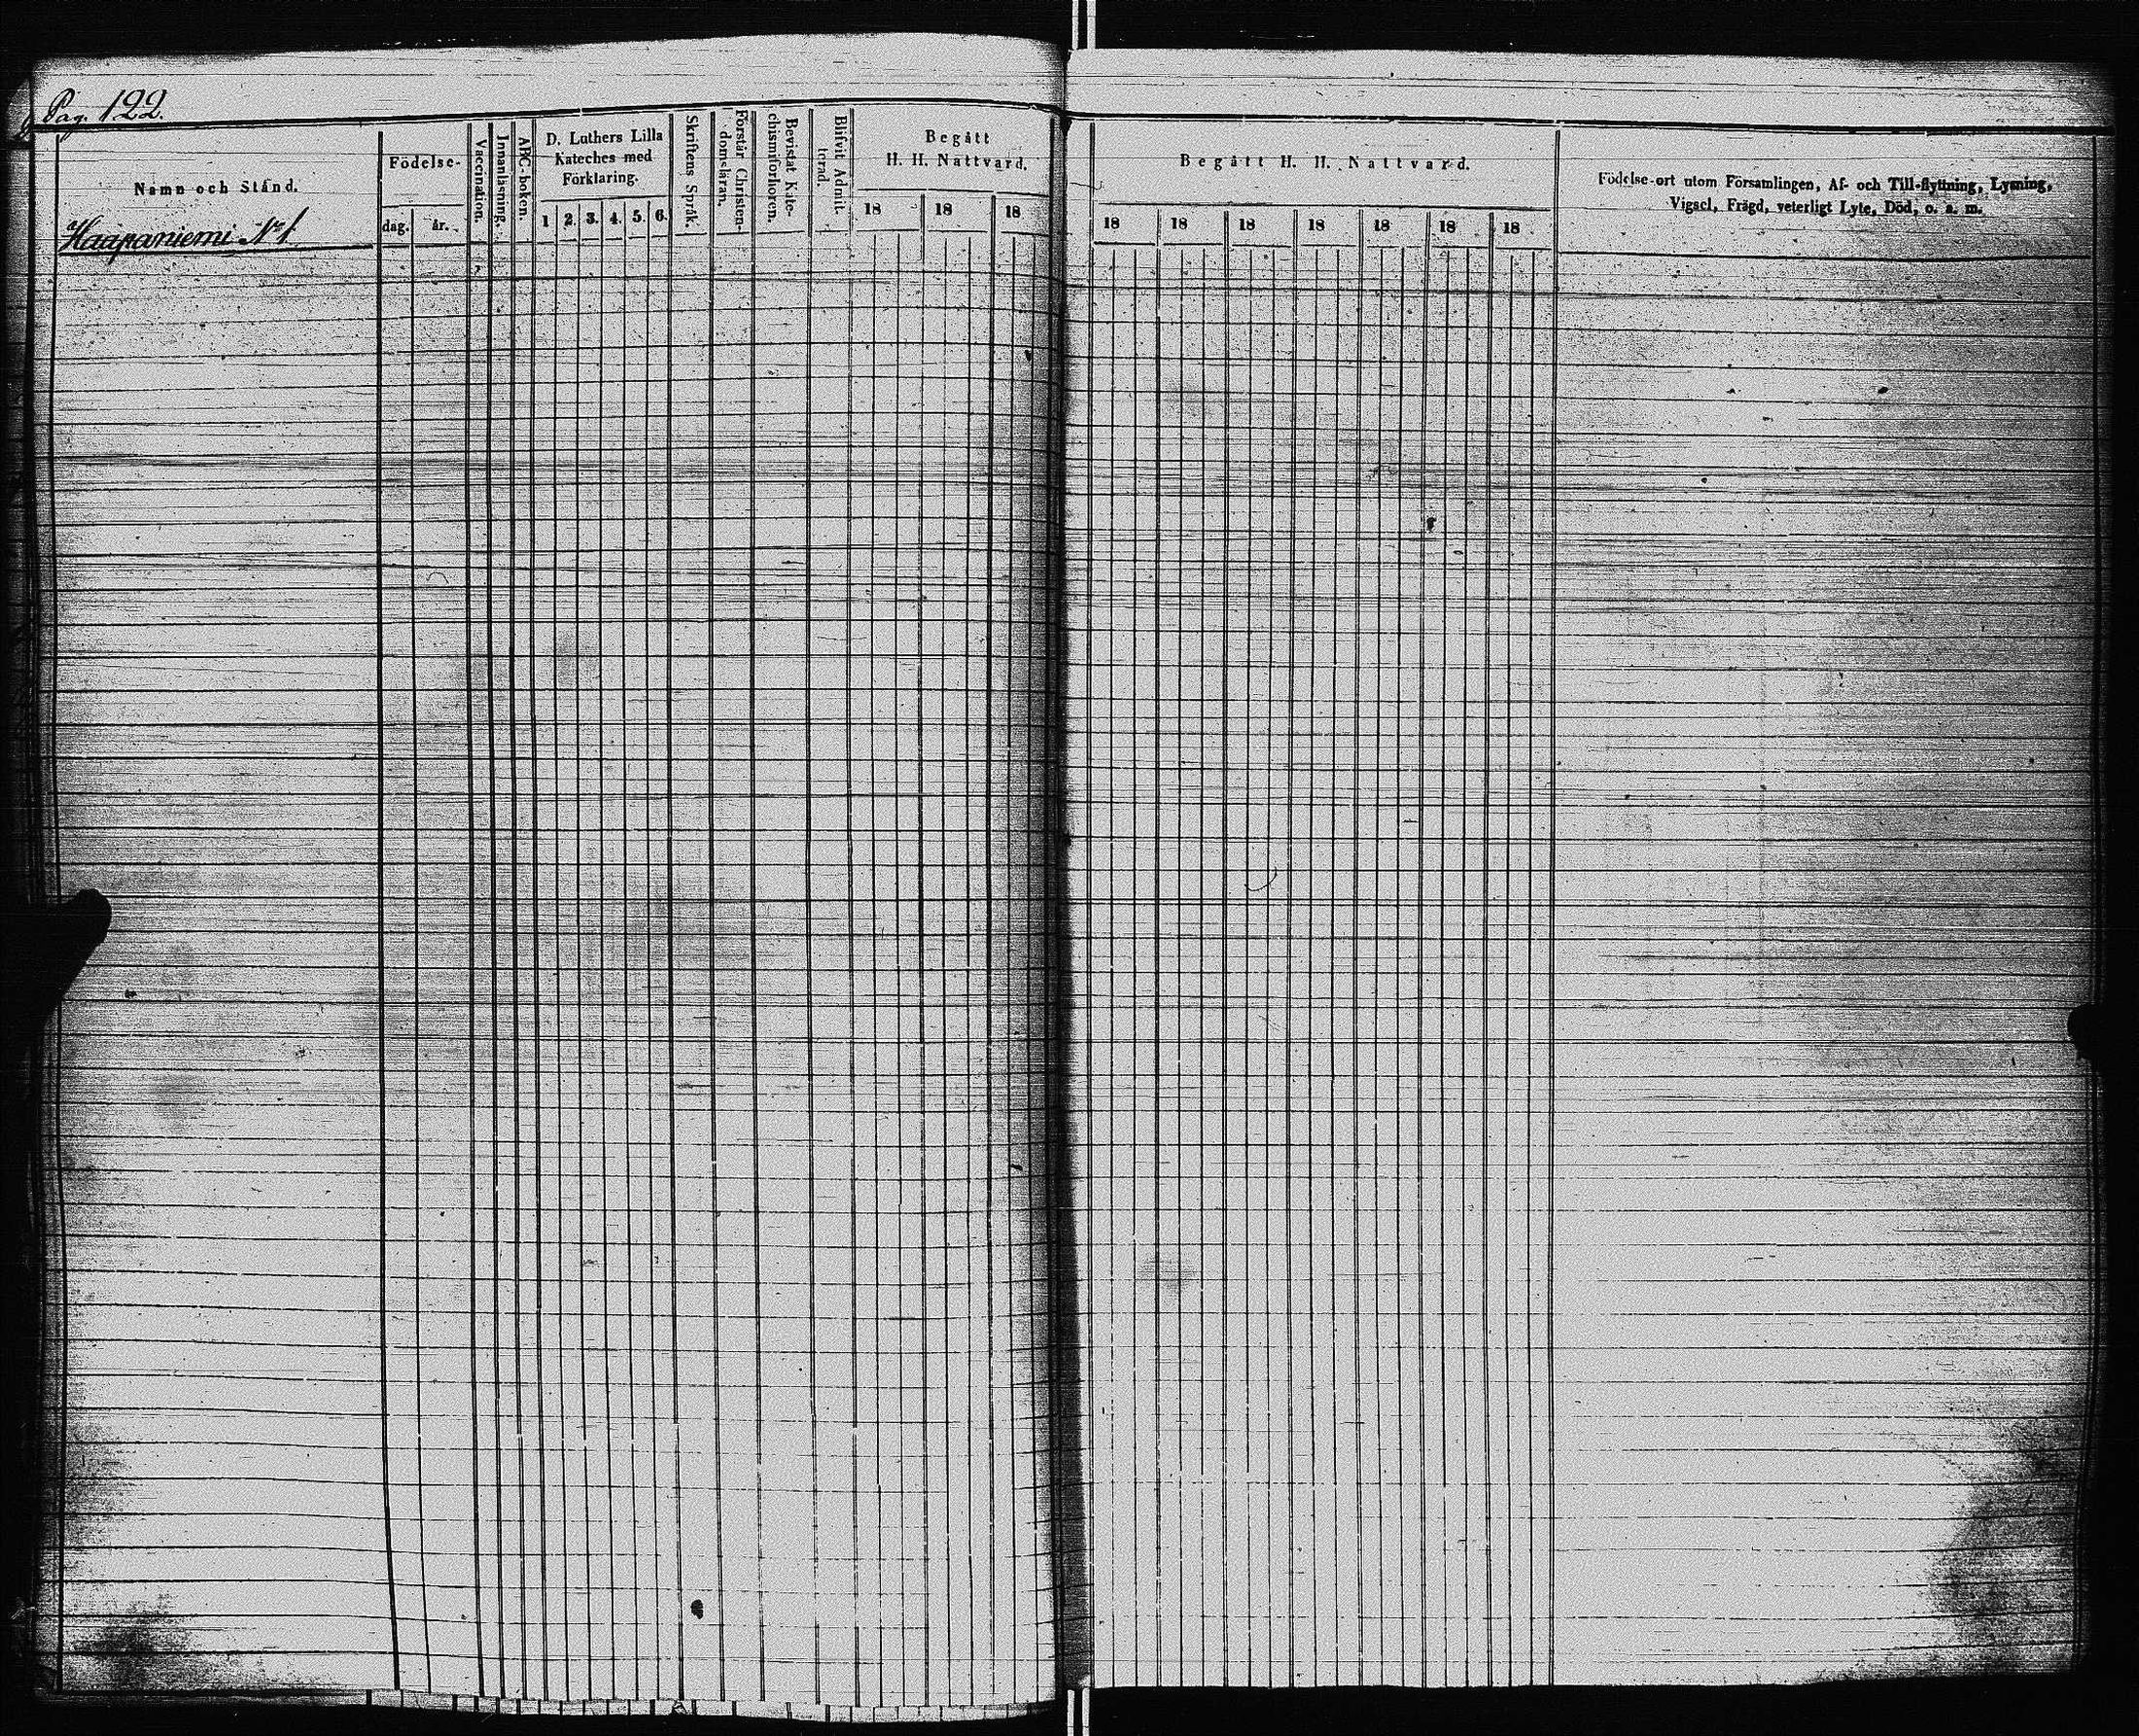 Pag. 122.
Namn och Stånd.
Haapaniemi No 1
Födelse-
dag.
år.
Vaccination.
Innanläsning.
ABC-boken.
D. Luthers Lilla
Kateches med
Förklaring.
1 2. 3. 4. 5. 6.
Skriftens Språk.
Förstår Christen-
domsläran.
Bevistat Kate-
chismiförhören.
Blifvit Admit-
terad.
Begått
H. H. Nattvard.
18 18 18
Begått H. H. Nattvard.
18 18 18 18 18 18 18
Födelse-ort utom Församlingen, Af- och Till-flyttning, Lysning,
Vigsel, Frägd, veterligt Lyte, Död, o. s. m.